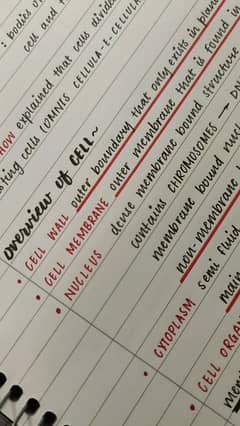 : bodies of
cell and t
HOW explained that cells divide
isting cells (OMNIS CELLULA-E-CELLULA
overview of CELL~
CELL WALL outer boundary that only exists in plan
CELL MEMBRANE outer membrane that is found in
NUCLEUS dense membrane bound structure
contains CHROMOSOMES → D
membrane bound nuc
non-membrane
CYTOPLASM semi fluid
main
CELL ORGAN